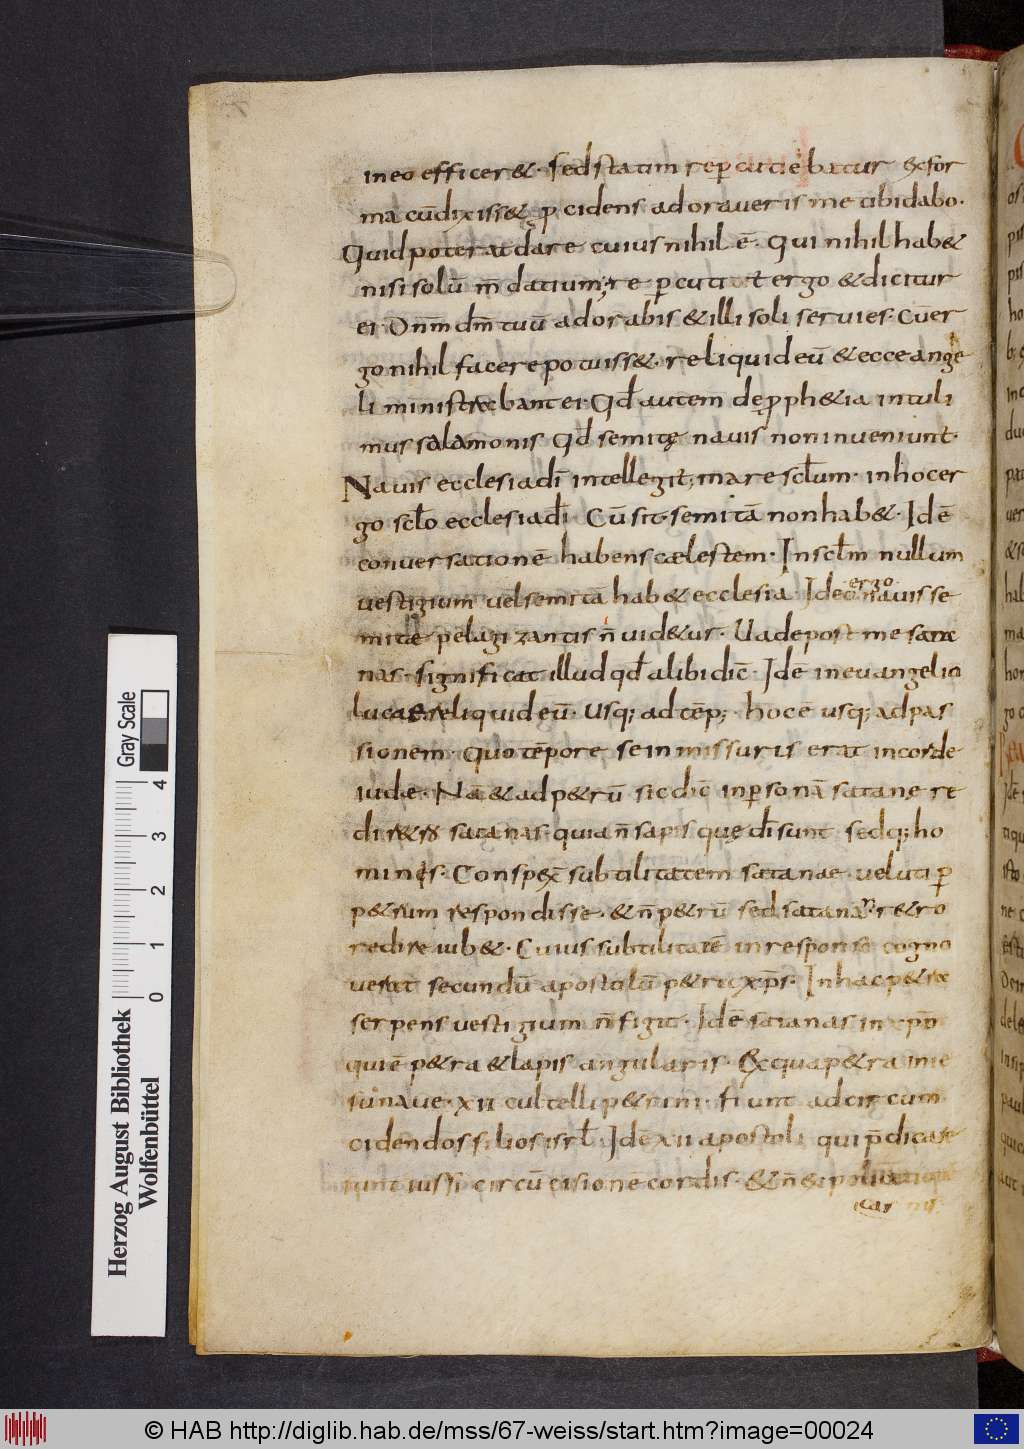 in eo efficer&. sed statim repercutiebatur & for
ma cūdixiss& p cidens adoraveris me tibi dabo.
Quid poterat dare cuius nihil ē. Qui nihil hab&
nisi solū m datium; re p cuti t ergo & dicitur
ei. Dnm dm tuū adorabis & illi soli servies. Cū er
go nihil facere potuiss&. reliquid eū & ecce ange
li ministrabant ei. Qd autem de pph&ia intuli
mus salamonis qd semitę navis non inveniunt.
Navis ecclesia dī intellegit; mare sclum. in hoc er
go sclo ecclesia dī Cū sit. semitā non hab&. Idē
conversationē habens cælestem. In sclm nullum
vestigium vel semitā hab& ecclesia. Ideo ergo navis se
mitæ pelagizantis n̄ vid&ur. Uade post me sata
nas. significat illud qd alibi dic̄. Idē in evangelio
lucae reliquid eū. Usq; ad tēp; hoc ē usq; ad pas
sionem. quo tēpore se in missuris erat in corde
iudæ. Nā & ad p&rū sic dic̄ in psona satanę re
di r&ro satanas. quia n̄ sapis quę dī sunt sed q; ho
minis. Conspex̄ subtilitatem satanae. veluti p
p&rum respondisse. & n̄ p&rū sed satanā. r&ro
redire iub&. Cuius subtilitatē in responso cogno
verat secundū apostolū p&ra xps. In hac p&ra
serpens vestigium n̄ figit. Idē satanas in xpo
qui ē p&ra & lapis angularis. Ex qua p&ra in ie
su nave. xii cultelli p&rini. fiunt ad circum
cidendos filios isrl. Idē xii apostoli qui pdicare
iunt iussi circūcisionē cordis. & n̄
carnis
Herzog August Bibliothek
Wolfenbüttel
Gray Scale
0 1 2 3 4
© HAB http://diglib.hab.de/mss/67-weiss/start.htm?image=00024